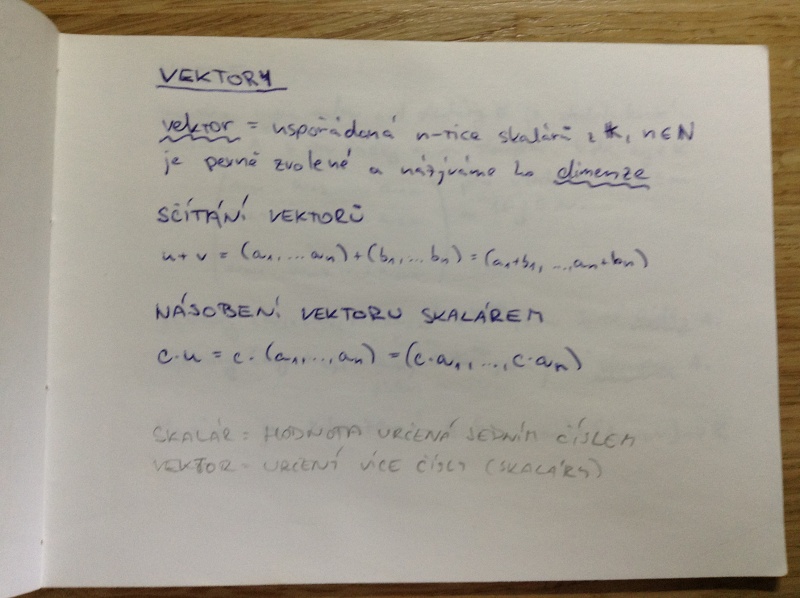 VEKTORY
vektor = uspořádaná n-tice skalárů z K, n∈N
je pevně zvolené a názýváme ho dimenze
SČÍTÁNÍ VEKTORŮ
u + v = (a₁, ... aₙ) + (b₁, ... bₙ) = (a₁+b₁, ..., aₙ+bₙ)
NÁSOBENÍ VEKTORU SKALÁREM
c·u = c·(a₁, ..., aₙ) = (c·a₁, ..., c·aₙ)
SKALÁR = HODNOTA URČENÁ JEDNÍM ČÍSLEM
VEKTOR = URČENÍ VÍCE ČÍSLY (SKALÁRY)